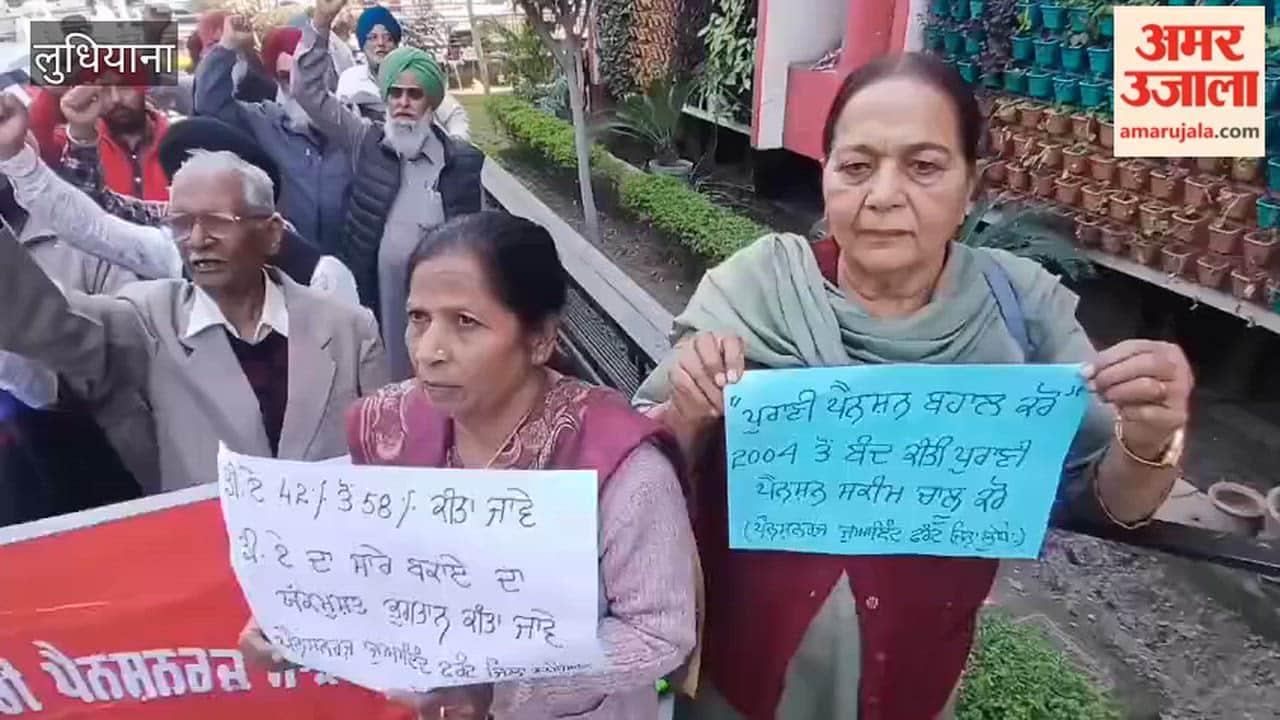 ਲੁਧਿਆਣਾ
अमर
उजाला
amarujala.com
"ਪੁਰਾਣੀ ਪੈਨਸ਼ਨ ਬਹਾਲ ਕਰੋ"
2004 ਤੋਂ ਬੰਦ ਕੀਤੀ ਪੁਰਾਣੀ
ਪੈਨਸ਼ਨ ਸਕੀਮ ਚਾਲੂ ਕਰੋ
(ਪੈਨਸ਼ਨਰਜ਼ ਜੁਆਇੰਟ ਫਰੰਟ ਜਿਲ੍ਹਾ
ਡੀ.ਏ 42% ਤੋਂ 58% ਕੀਤਾ ਜਾਵੇ
ਡੀ.ਏ ਦਾ ਸਾਰੇ ਬਕਾਏ ਦਾ
ਯੱਕਮੁਸ਼ਤ ਭੁਗਤਾਨ ਕੀਤਾ ਜਾਵੇ
ਪੈਨਸ਼ਨਰਜ਼ ਜੁਆਇੰਟ ਫਰੰਟ ਜਿਲਾ
ਪੈਨਸ਼ਨਰਜ਼